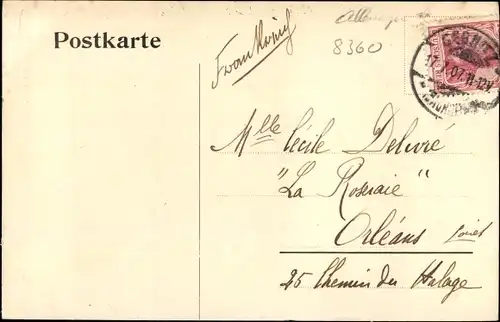 Postkarte
Frankreich
8360
17. 07. 11-12V.
Mlle Cécile Delivré
"La Roseraie"
Orléans Loiret
25 Chemin du Halage